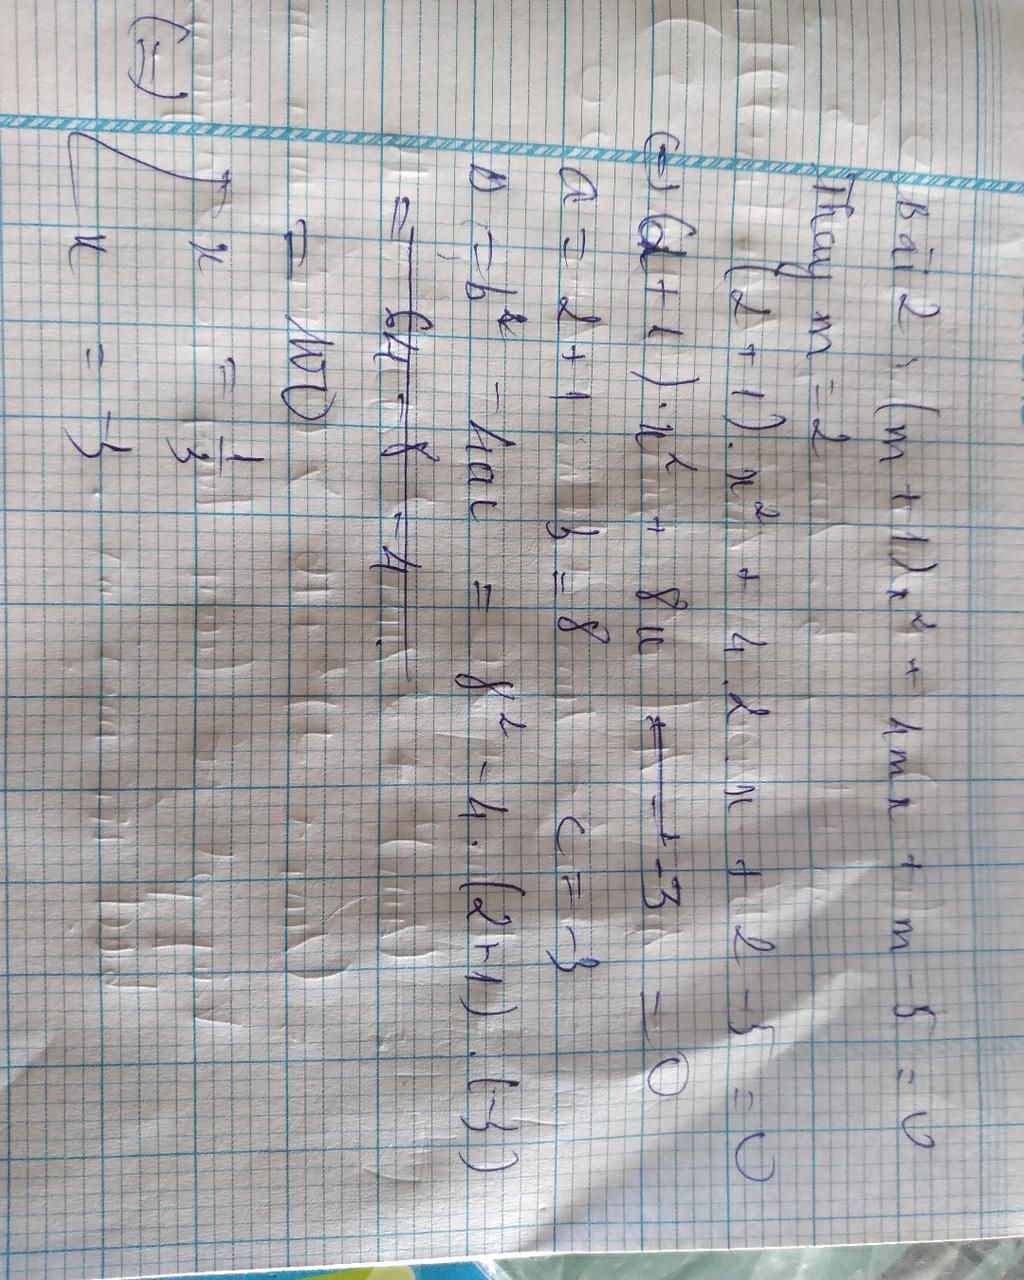 Bài 2, (m + 1)x² + 4mx + m - 5 = 0
Thay m = 2
(2 + 1).x² + 4.2.x + 2 - 5 = 0
(=) (2 + 1).x² + 8x - 3 = 0
a = 2+1 b = 8 c = -3
Δ = b² - 4ac = 8² - 4.(2+1).(-3)
= 64 - 8 - 4
= 100
(=) x = 1/3
x = -3